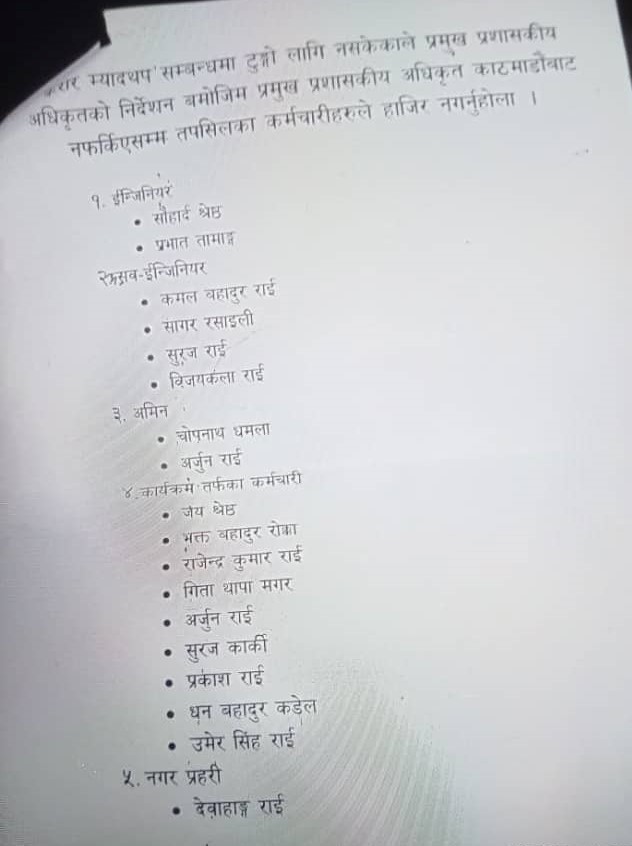 करार म्यादथप सम्बन्धमा टुङ्गो लागि नसकेकाले प्रमुख प्रशासकीय
अधिकृतको निर्देशन बमोजिम प्रमुख प्रशासकीय अधिकृत काठमाडौंबाट
नफर्किएसम्म तपसिलका कर्मचारीहरुले हाजिर नगर्नुहोला ।
१. ईन्जिनियर
• सौहार्द श्रेष्ठ
• प्रभात तामाङ्ग
सव-ईन्जिनियर
• कमल बहादुर राई
• सागर रसाइली
• सुरज राई
• विजयकला राई
३. अमिन
• चोपनाथ धमला
• अर्जुन राई
४. कार्यक्रम तर्फका कर्मचारी
• जय श्रेष्ठ
• भक्त बहादुर रोक्का
• राजेन्द्र कुमार राई
• गिता थापा मगर
• अर्जुन राई
• सुरज कार्की
• प्रकाश राई
• धन बहादुर कडेल
• उमेर सिंह राई
५. नगर प्रहरी
• देवाहाङ्ग राई